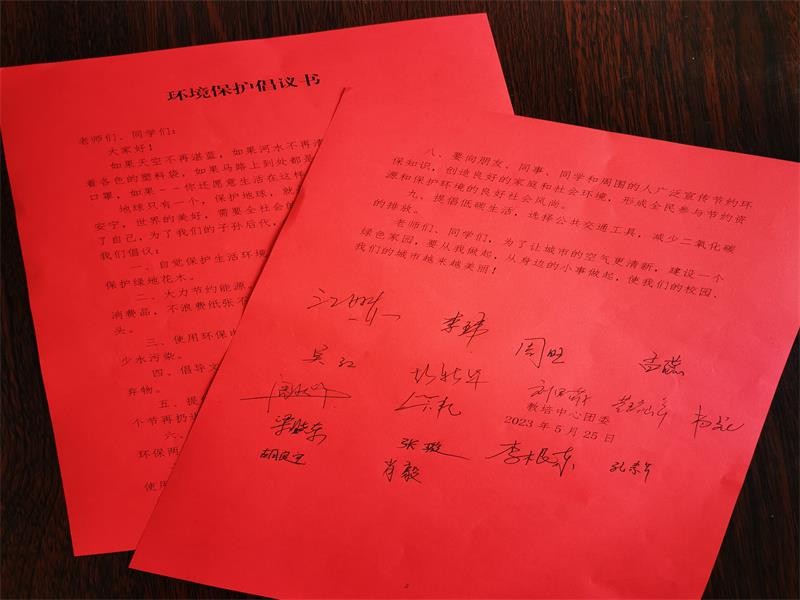 环境保护倡议书
老师们、同学们:
大家好!
如果天空不再湛蓝,如果河水不再清
着各色的塑料袋,如果马路上到处都是
口罩,如果--你还愿意生活在这样
地球只有一个,保护地球,就
安宁,世界的美好,需要全社会的
了自己,为了我们的子孙后代,
我们倡议:
一、自觉保护生活环境
保护绿地花木。
二、大力节约能源
消费品,不浪费纸张不
头。
三、使用环保
少水污染。
四、倡导文
弃物。
五、提
个节再扔进
六、
环保两
使用
八、要向朋友、同事、同学和周围的人广泛宣传节约环
保知识,创造良好的家庭和社会环境,形成全民参与节约资
源和保护环境的良好社会风尚。
九、提倡低碳生活,选择公共交通工具,减少二氧化碳
的排放。
老师们、同学们,为了让城市的空气更清新,建设一个
绿色家园,要从我做起,从身边的小事做起,使我们的校园、
我们的城市越来越美丽!
李玮
周旺
吴红
教培中心团委
2023年5月25日
梁晓东
张璇
李根东
肖毅